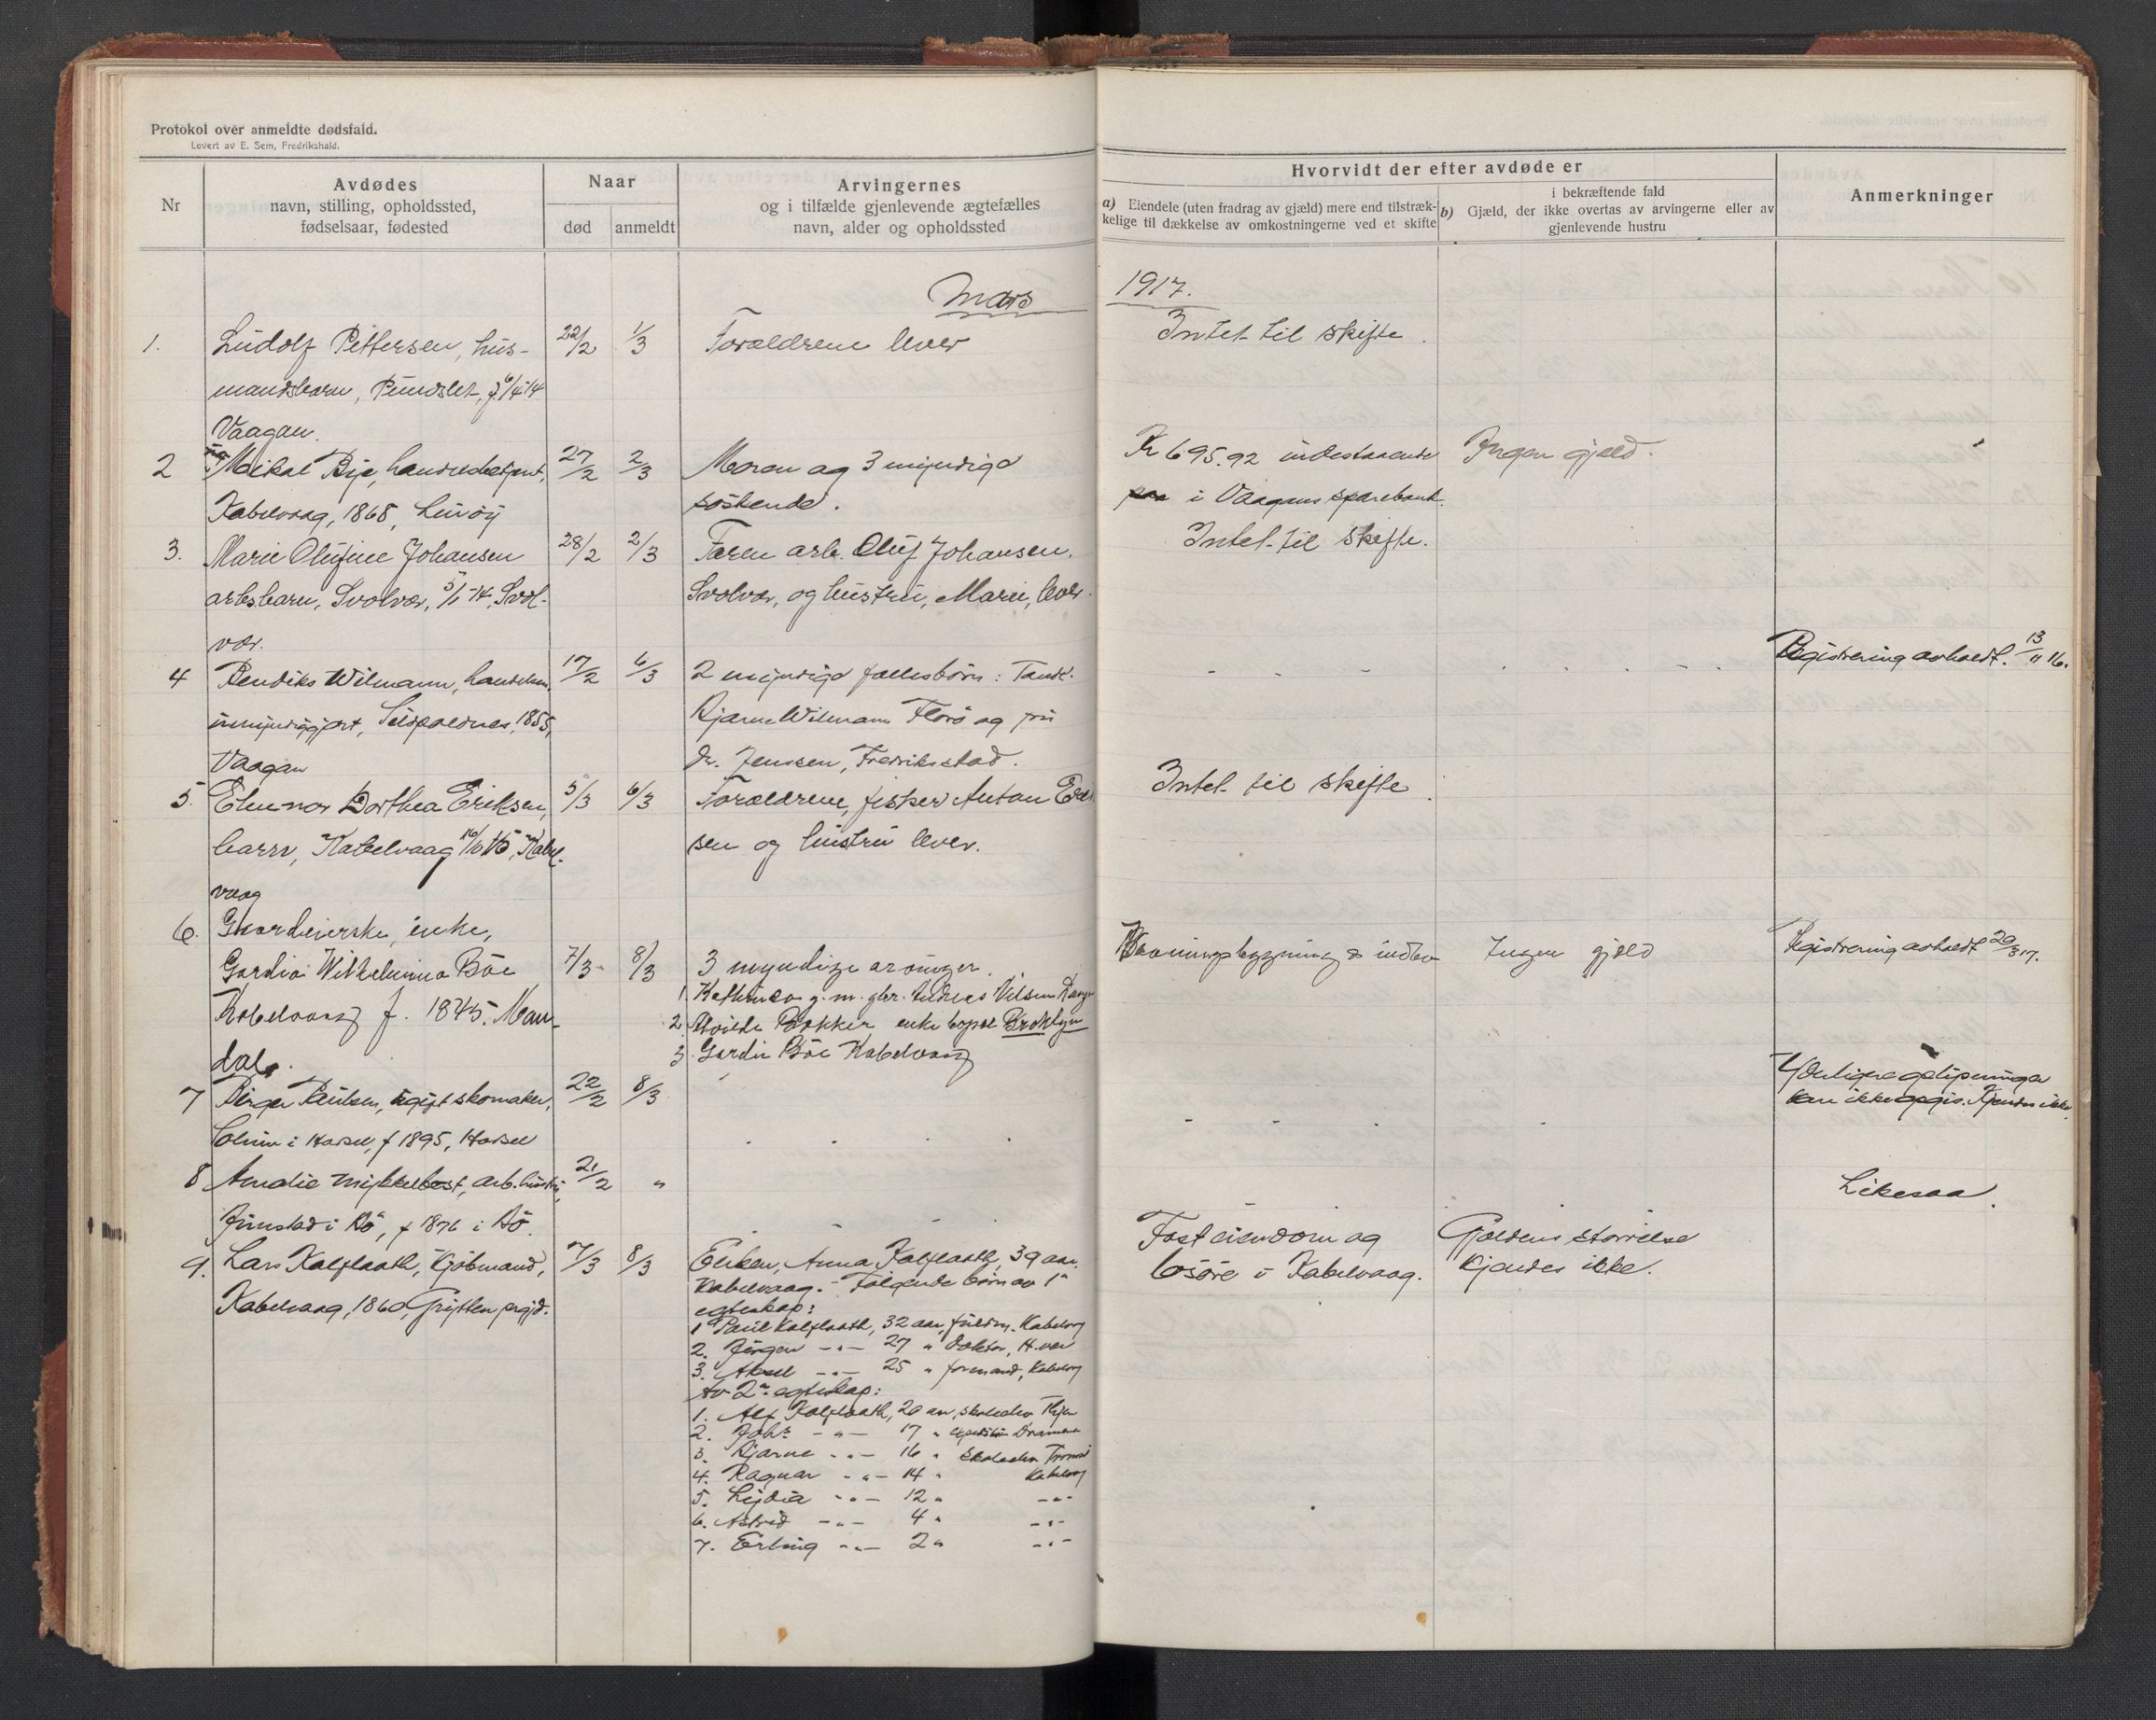 Protokol over anmeldte dødsfald.
Levert av E. Sem, Fredrikshald.
Nr
Avdødes
navn, stilling, opholdssted,
fødselsaar, fødested
Naar
død
anmeldt
Arvingernes
og i tilfælde gjenlevende ægtefælles
navn, alder og opholdssted
Hvorvidt der efter avdøde er
a) Eiendele (uten fradrag av gjæld) mere end tilstræk-
kelige til dækkelse av omkostningerne ved et skifte
i bekræftende fald
b) Gjæld, der ikke overtas av arvingerne eller av
gjenlevende hustru
Anmerkninger
Mars
1917.
1. Ludolf Pettersen, hus- 22/2 1/3 Forældrene lever Intet til skifte.
mandsbarn, Pundslet, f. 6/4-14
Vaagan.
2 Mikal Bye, handelsbetjent, 27/2 2/3 Moren og 3 myndige Kr 695.92 indestaaende Ingen gjæld.
Kabelvaag, 1868, søskende. i Vaagans sparebank.
3. Marie Olufine Johansen 28/2 2/3 Faren arb. Oluf Johansen, Intet til skifte.
arb.barn, Svolvær, 5/1-14, Svol- Svolvær, og hustru, Marie, lever.
vær.
4 Bendiks Wilmann, handelsm. 17/2 6/3 2 myndige fællesbørn: Tandl. Registrering avholdt. 13/11 16.
umyndiggjort, 1855, Bjarne Wilmann Florø og fru
Vaagan dr. Jenssen, Fredriksstad.
5. Elinor Dorthea Eriksen, 5/3 6/3 Forældrene, fisker Anton Erik- Intet til skifte.
barn, Kabelvaag 16, Kabel- sen og hustru lever.
vaag
6. Gaardeierske, enke,
Gardia Wilhelmina Böe 7/3 8/3 3 myndige arvinger. bygning & indbo Ingen gjæld Registrering avholdt 20/3 17.
Kabelvaag f. 1845. Man- 1. Kathinca g. m. gbr. Andreas Nilsen
dal. 2. Bakken enke bopæl Broklyn
3. Gardie Böe Kabelvaag
7 Birger Paulsen, ugift skomaker, 22/2 8/3 Yderligere oplysninger
i Hadsel, f 1895, Hadsel kan ikke opgis. Kjendes ikke.
8 Amalie Myklebost, arb. hustru, 21/2 " Likesaa.
Junstad i Bø, f 1876 i Bø.
9. Lars Kalflaath, Kjøbmand, 7/3 8/3 Enken, Anna Kalflaath, 39 aar. Fast eiendom og Gjældens størrelse
Kabelvaag, 1860, Grytten prgjd. Kabelvaag. - Følgende børn av 1' løsøre i Kabelvaag. kjendes ikke.
egteskap:
1 Paul Kalflaath, 32 aar, fuldm. Kabelvag
2. Jørgen -"- 27 " doktor, H.vær
3. Aksel -"- 25 " formand, Kabelvag
Av 2' egteskap:
1. Alf Kalflaath, 20 aar, skoleelev,
2. Johs -"- 17 " Drammen
3. Bjarne -"- 16 " skoleelev Tromsø
4. Ragnar -"- 14 " Kabelvag
5. Lydia -"- 12 " -"-
6. Astrid -"- 4 " -"-
7. Erling -"- 2 " -"-